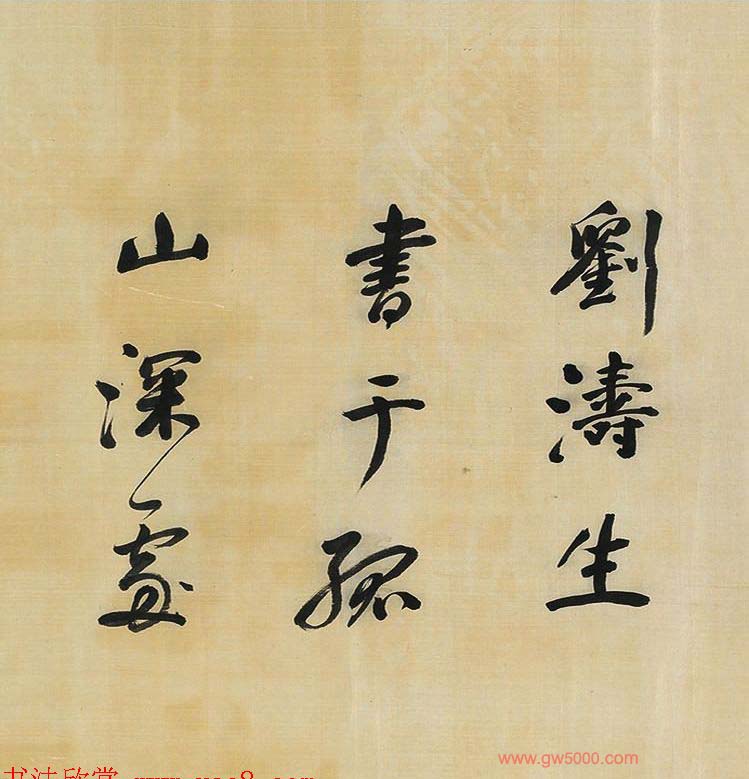 劉濤生
書于孤
山深處
书法欣赏
www.gw5000.com